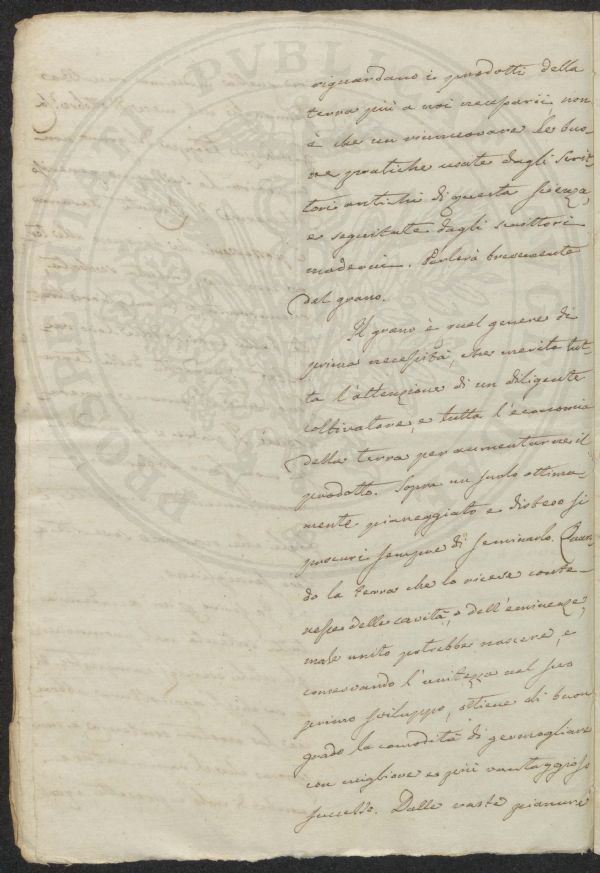 riguardano i prodotti della
terra più a noi necessarii non
è che un rinnovare le buo-
ne pratiche usate dagli scrit
tori antichi di questa scienza,
e seguitate dagli scrittori
moderni. Parlerò brevemente
del grano.
Il grano è quel genere di
prima necessità, che merita tut
ta l'attenzione di un diligente
coltivatore, e tutta l'economia
della terra per aumentarne il
prodotto. Sopra un suolo ottima-
mente pianeggiato e disteso si
procuri sempre di seminarlo. Quan
do la terra che lo riceve conte-
nesse delle cavità, o dell'eminenze,
male unito potrebbe nascere, e
conservando l'unitezza nel suo
primo sviluppo, ottiene di buon
grado la comodità di germogliare
con migliore e più vantaggioso
successo. Dalle vaste pianure